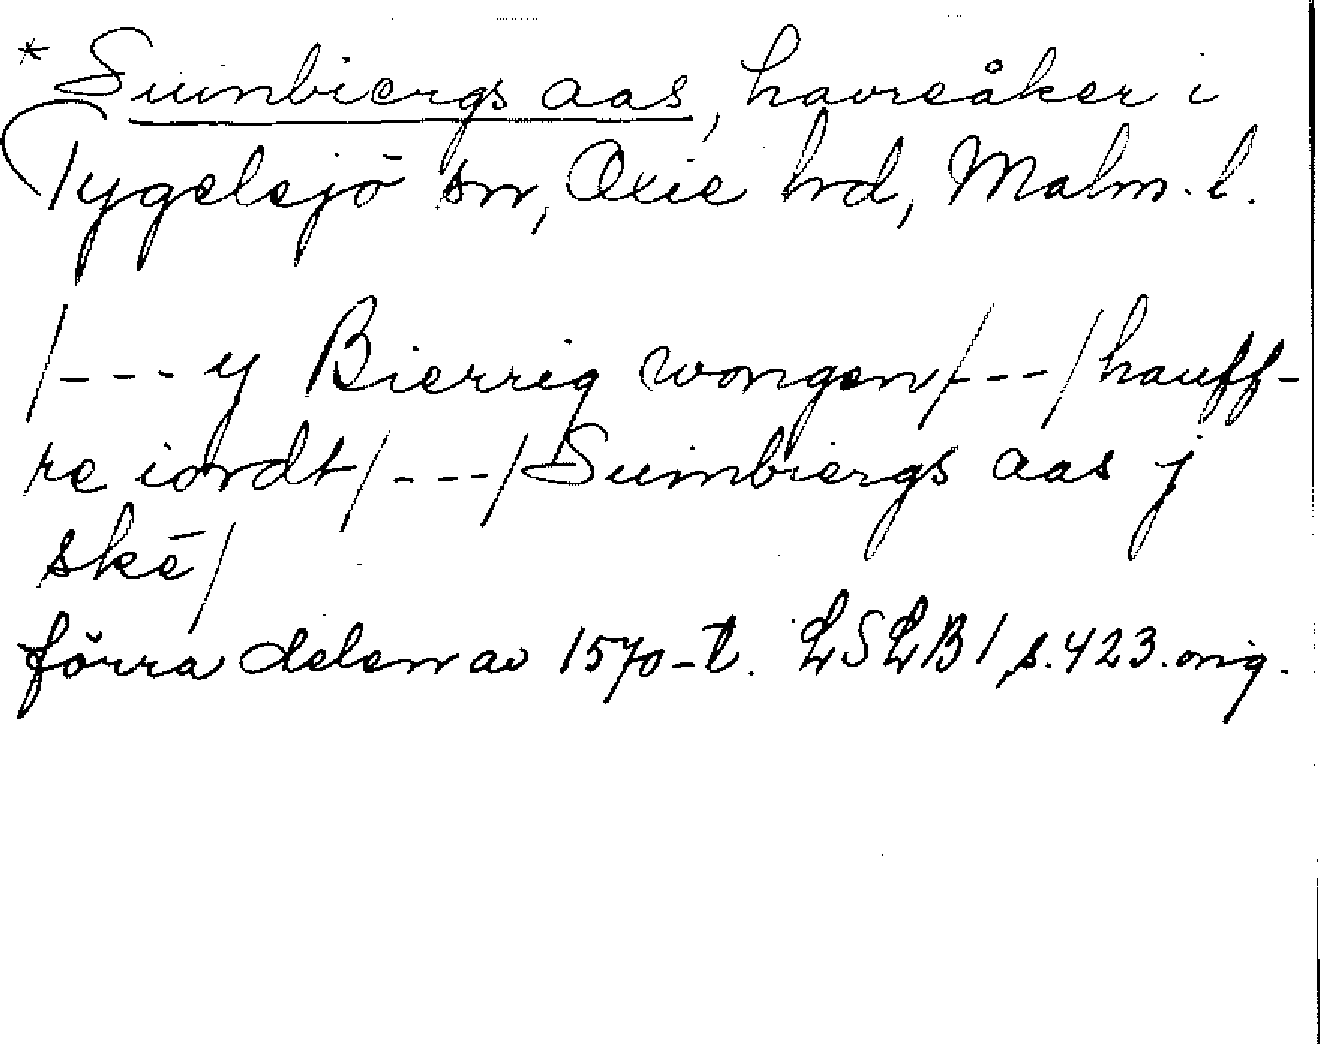 * Suinbiergs aas, havreåker i
Tygelsjö sn, Oxie hd, Malm. l.
/--- y Bierrig wongen/---/hauff-
re iordt/---/Suinbiergs aas j
skē/
förra delen av 1570-t. LSLB1 s. 423. orig.